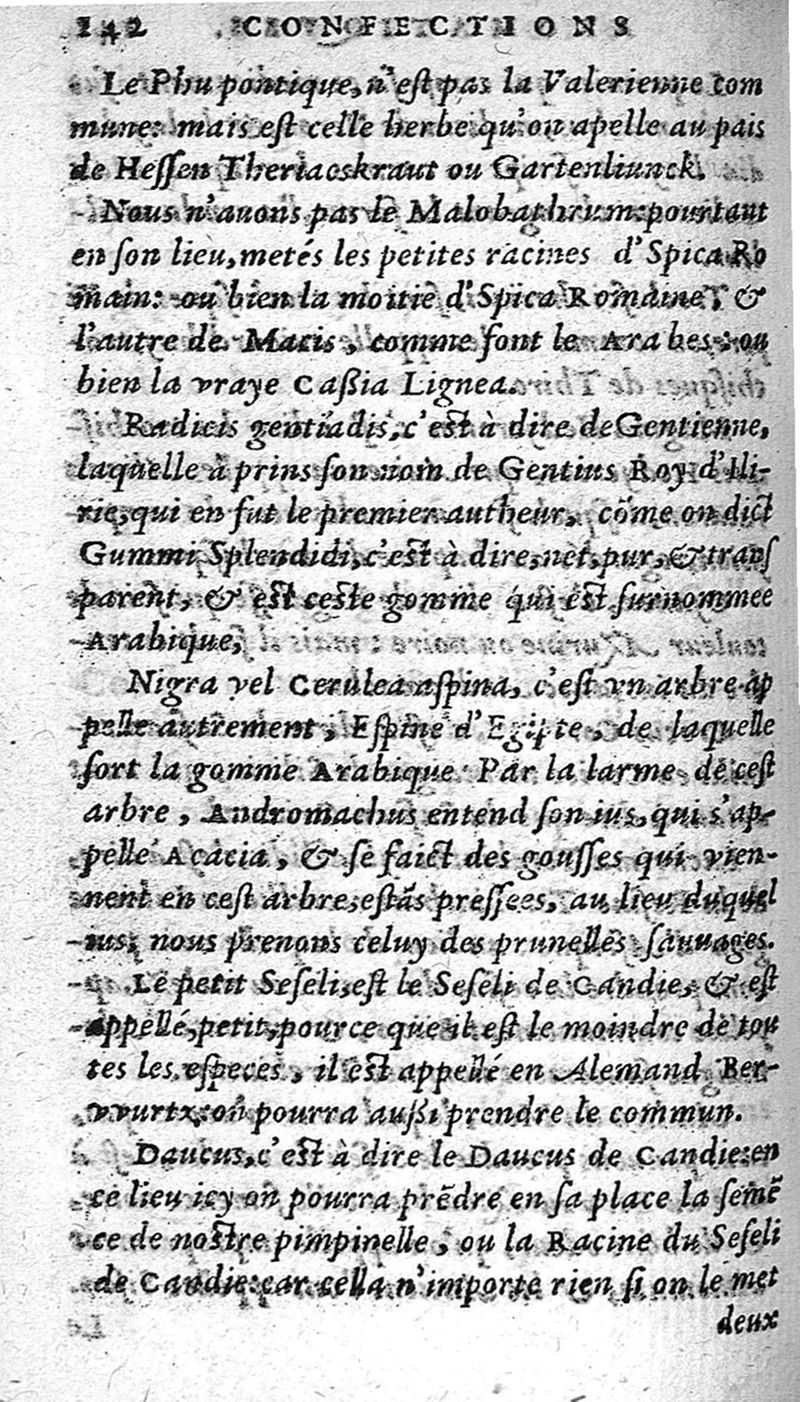 142 CONFECTIONS
Le Phu pontique, n'est pas la Valerienne com
mune: mais est celle herbe qu'on apelle au pais
de Hessen Theriacskraut ou Gartenliunck.
Nous n'auons pas le Malobathrum: pourtant
en son lieu, metés les petites racines d'Spica Ro
main: ou bien la moitie d'Spica Romaine, &
l'autre de Macis, comme font le Arabes: ou
bien la vraye Cassia Lignea.
Radicis gentiadis, c'est à dire de Gentienne,
laquelle à prins son nom de Gentius Roy d'Ili-
rie, qui en fut le premier autheur, cõme on dict
Gummi Splendidi, c'est à dire, net, pur, & trans
parent, & est ceste gomme qui est surnommee
Arabique,
Nigra vel Cerulea aspina, c'est vn arbre ap
pelle autrement, Espine d'Egipte, de laquelle
sort la gomme Arabique. Par la larme de cest
arbre, Andromachus entend son ius, qui s'ap-
pelle Acacia, & se faict des gousses qui vien-
nent en cest arbre, estãs pressees, au lieu duquel
ius, nous prenons celuy des prunelles sauuages.
Le petit Seseli, est le Seseli de Candie, & est
appellé, petit, pource que il est le moindre de tou
tes les especes, il est appellé en Alemand Ber-
vvurtz: on pourra aussi prendre le commun.
Daucus, c'est à dire le Daucus de Candie: en
ce lieu icy on pourra prẽdre en sa place la semẽ
ce de nostre pimpinelle, ou la Racine du Seseli
de Candie: car cella n'importe rien si on le met
deux